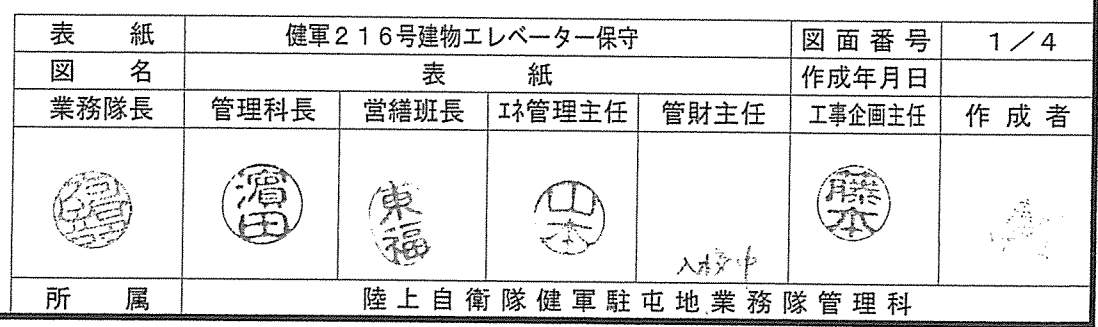 表　紙　健軍２１６号建物エレベーター保守　図面番号　１／４
図　名　表　紙　作成年月日
業務隊長　管理科長　営繕班長　エネ管理主任　管財主任　工事企画主任　作成者
濵田　東福　山本　藤本
入校中
所　属　陸上自衛隊健軍駐屯地業務隊管理科